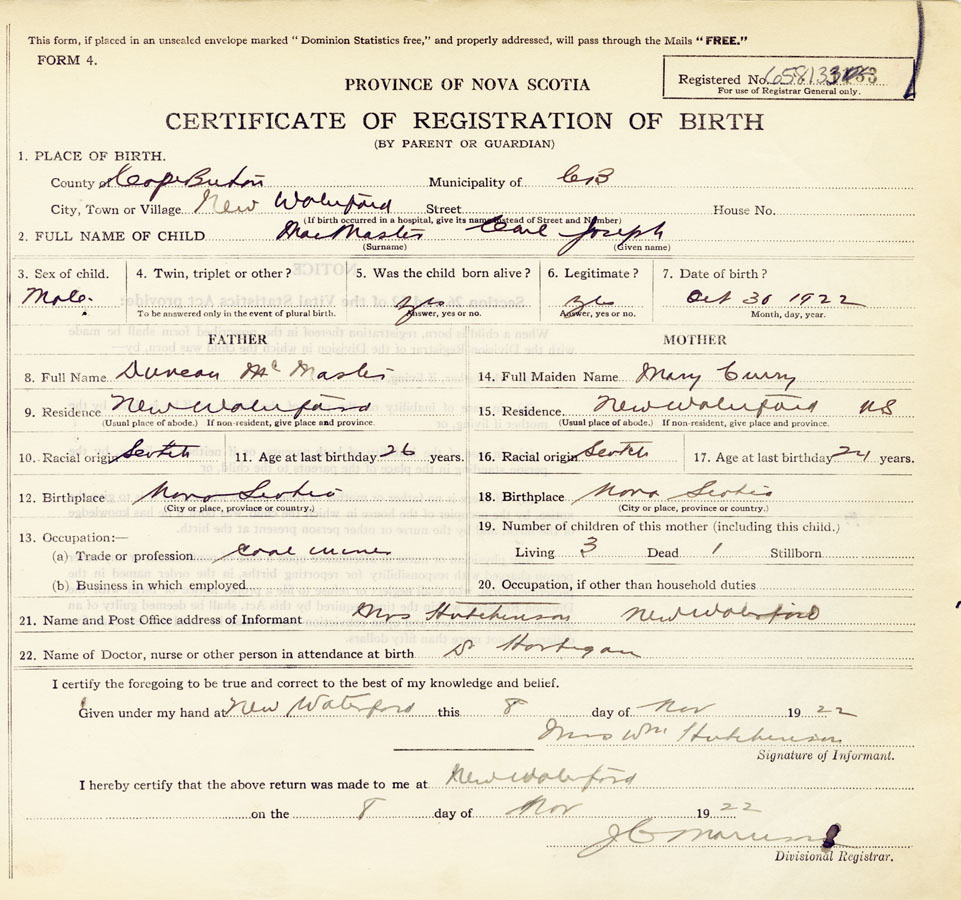 This form, if placed in an unsealed envelope marked "Dominion Statistics free," and properly addressed, will pass through the Mails "FREE."
FORM 4.
Registered No.
For use of Registrar General only.
PROVINCE OF NOVA SCOTIA
CERTIFICATE OF REGISTRATION OF BIRTH
(BY PARENT OR GUARDIAN)
1. PLACE OF BIRTH.
County of Cape Breton Municipality of CB
City, Town or Village New Waterford Street House No.
(If birth occurred in a hospital, give its name instead of Street and Number)
2. FULL NAME OF CHILD MacMaster Carl Joseph
(Surname) (Given name)
3. Sex of child. 4. Twin, triplet or other? 5. Was the child born alive? 6. Legitimate? 7. Date of birth?
Male. yes yes Oct 30 1922
To be answered only in the event of plural birth. Answer, yes or no. Answer, yes or no. Month, day, year.
FATHER MOTHER
8. Full Name Duncan Mc Master 14. Full Maiden Name Mary Curry
9. Residence New Waterford 15. Residence New Waterford NS
(Usual place of abode.) If non-resident, give place and province. (Usual place of abode.) If non-resident, give place and province.
10. Racial origin Scotch 11. Age at last birthday 26 years. 16. Racial origin Scotch 17. Age at last birthday 24 years.
12. Birthplace Nova Scotia 18. Birthplace Nova Scotia
(City or place, province or country.) (City or place, province or country.)
19. Number of children of this mother (including this child.)
13. Occupation:—
(a) Trade or profession coal miner Living 3 Dead 1 Stillborn
(b) Business in which employed 20. Occupation, if other than household duties
21. Name and Post Office address of Informant Mrs Hutchinson New Waterford
22. Name of Doctor, nurse or other person in attendance at birth Dr Hartigan
I certify the foregoing to be true and correct to the best of my knowledge and belief.
Given under my hand at New Waterford this 8 day of Nov 1922
Mrs Wm Hutchinson
Signature of Informant.
I hereby certify that the above return was made to me at New Waterford
on the 8 day of Nov 1922
Divisional Registrar.